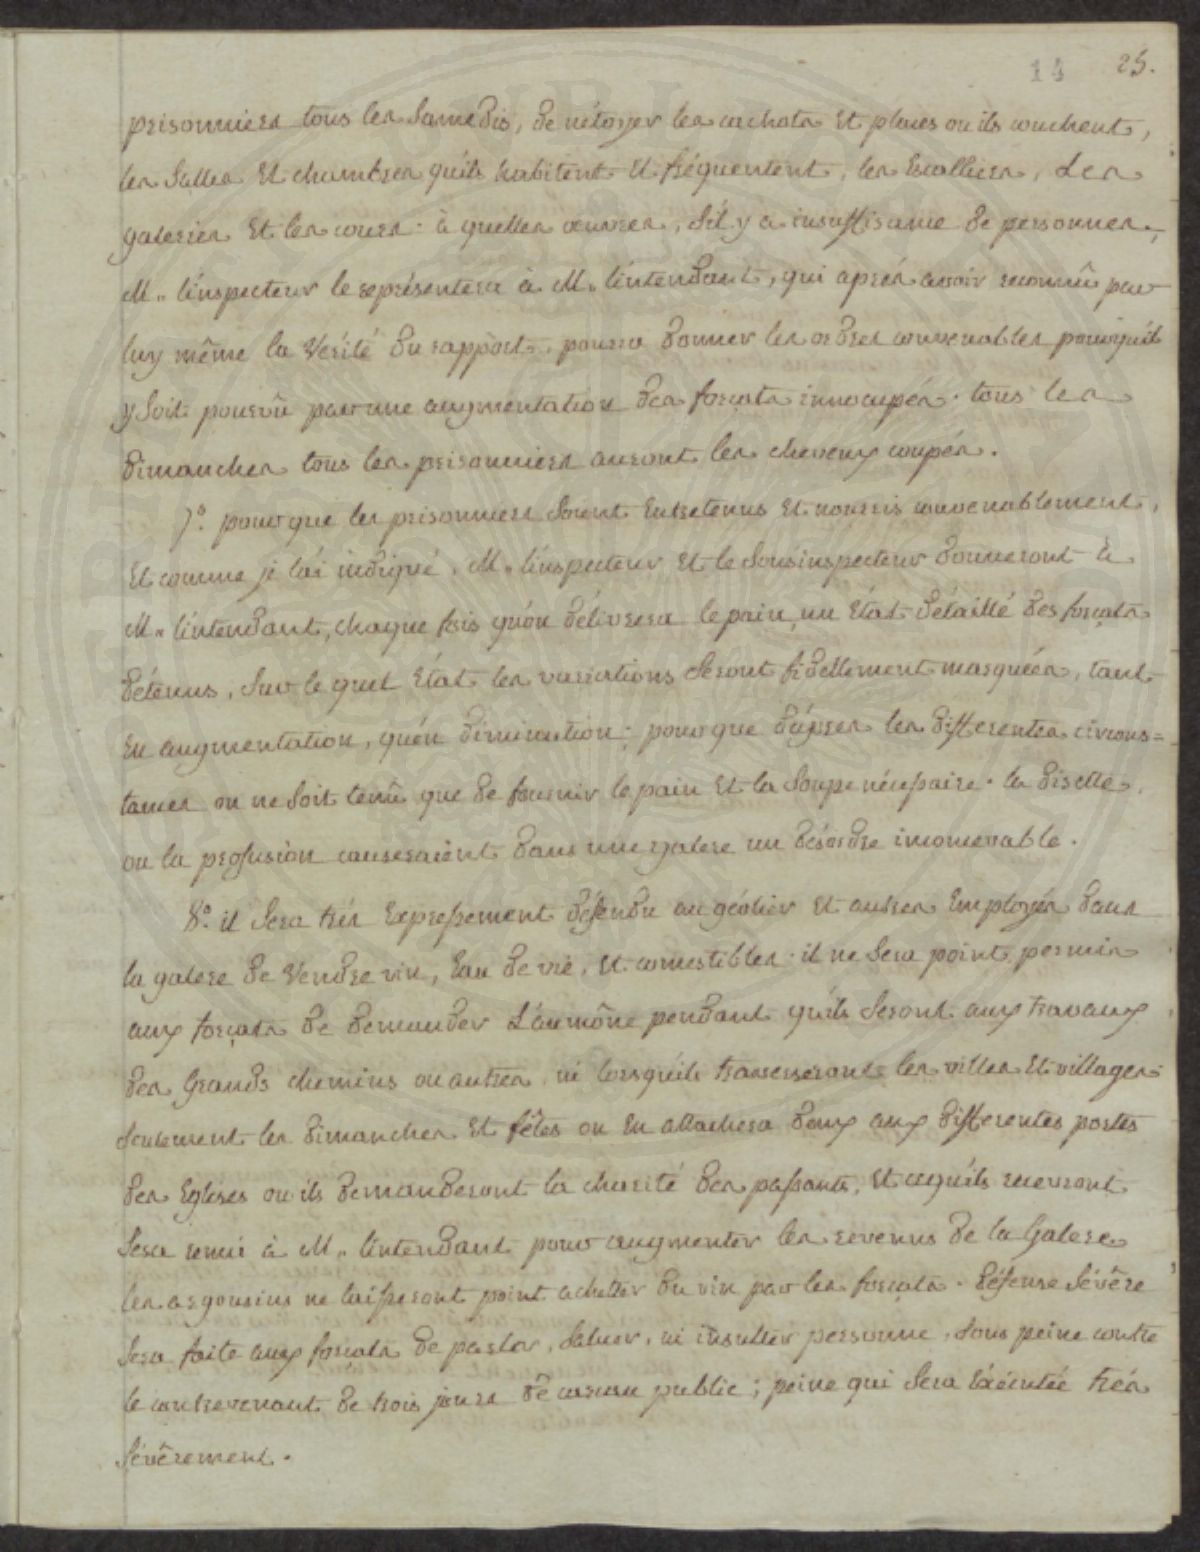 14 25.
prisonniers tous les samedis, de nétoyer les cachots et places ou ils couchent,
les salles et chambres qu'ils habitent et fréquentent, les Escalliers, Les
galeries et les cours: à quelles œuvres, s'il y a insuffisance de personnes,
M.. l'inspecteur le représentera à M.. l'intendant, qui aprés avoir reconnû par
luy même la Vérité du rapport, pourra donner les ordres convenables pourqu'il
y soit pourvû par une augmentation des forçats innocupés. tous les
dimanches tous les prisonniers auront les cheveux coupés.
7.º pour que les prisonniers soient Entretenus et nourris convenablement,
Et comme je l'ai indiqué, M.. l'inspecteur et le sousinspecteur donneront à
M.. l'intendant, chaque fois qu'on délivrera le pain, un Etat détaillé des forçats
détenus, sur le quel Etat les variations seront fidellement marquées, tant
En augmentation, qu'en diminution; pour que d'après les differentes circons=
tances on ne soit tenû que de fournir le pain et la soupe nécessaire. la disette,
ou la profusion causeraient dans une galere un désordre inconcevable.
8.º il sera trés Expressement défendu au géolier et autres Employés dans
la galere de Vendre vin, Eau de vie, et comestibles. il ne sera point permis
aux forçats de demander L'aumône pendant qu'ils seront aux travaux
des Grands chemins ou autres, ni lorsqu'ils traverseront les villes et villages.
seulement les dimanches et fêtes on En attachera deux aux differentes portes
des Eglises ou ils demanderont la charité des passants, et ce qu'ils recevront
sera remis à M.. l'intendant pour augmenter les revenus de la Galere
les argousins ne laisseront point achetter du vin par les forçats. défense sévêre
sera faite aux forçats de parler, saluer, ni insulter personne, sous peine contre
le contrevenant de trois jours de carcan public; peine qui sera Exécutée trés
sévêrement.